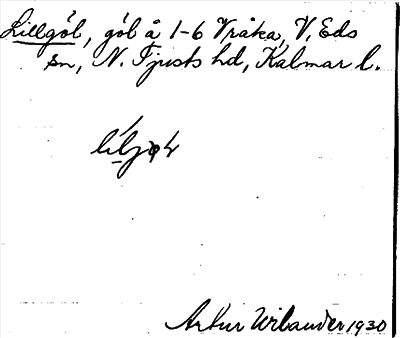 Lillgöl, göl å 1-6 Vråka, V. Eds
sn, N. Tjusts hd, Kalmar l.
Artur Wilander 1930